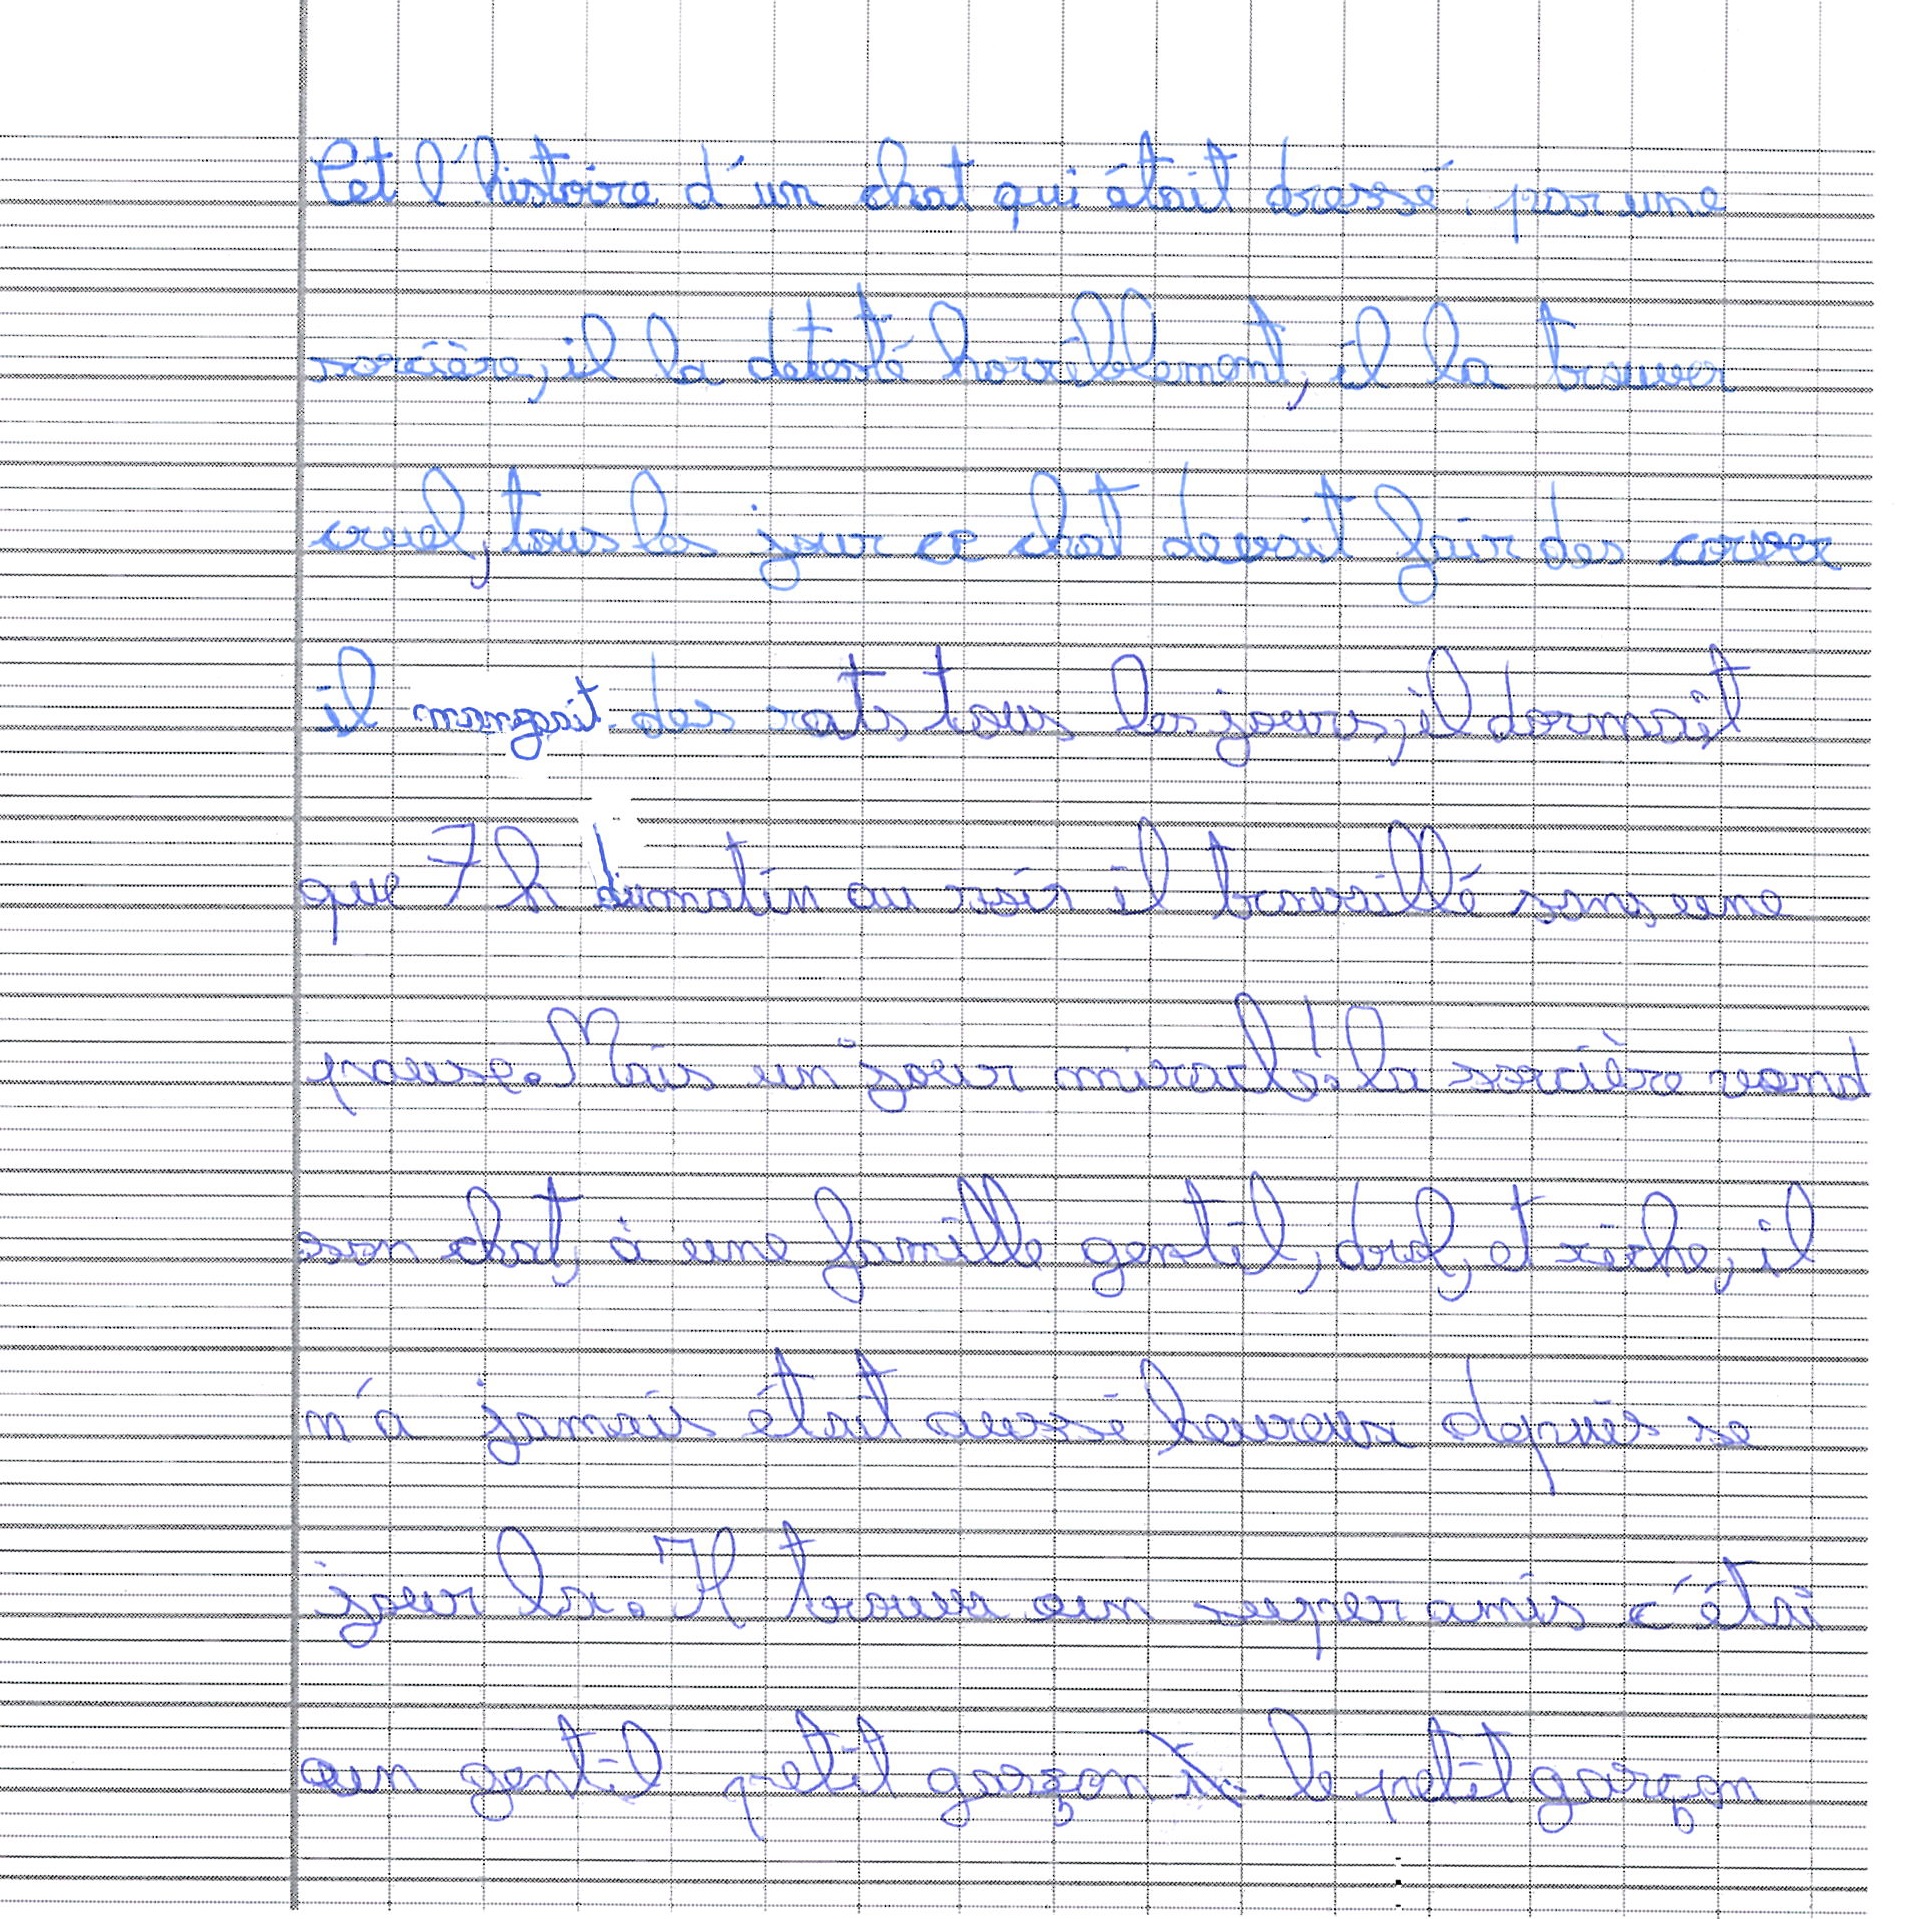 Cet l'histoire d'un chat qui était dressé par une
sorcière, il la detesté horriblement, il la trouver
cruel, tous les jour ce chat devait fair des corver
il mangait des rats tous les jours, il dormait
que 7 h du matin au soir il travaillé sans une
pause. Mais un jour miracle ! la sorcière vend
son chat, à une famille gentil, dref, et riche, il
n'a jamais était aussi heureux depuis se
jour la. Il trouva un super amis c'étai
un gentil petit garçon le petit garçon